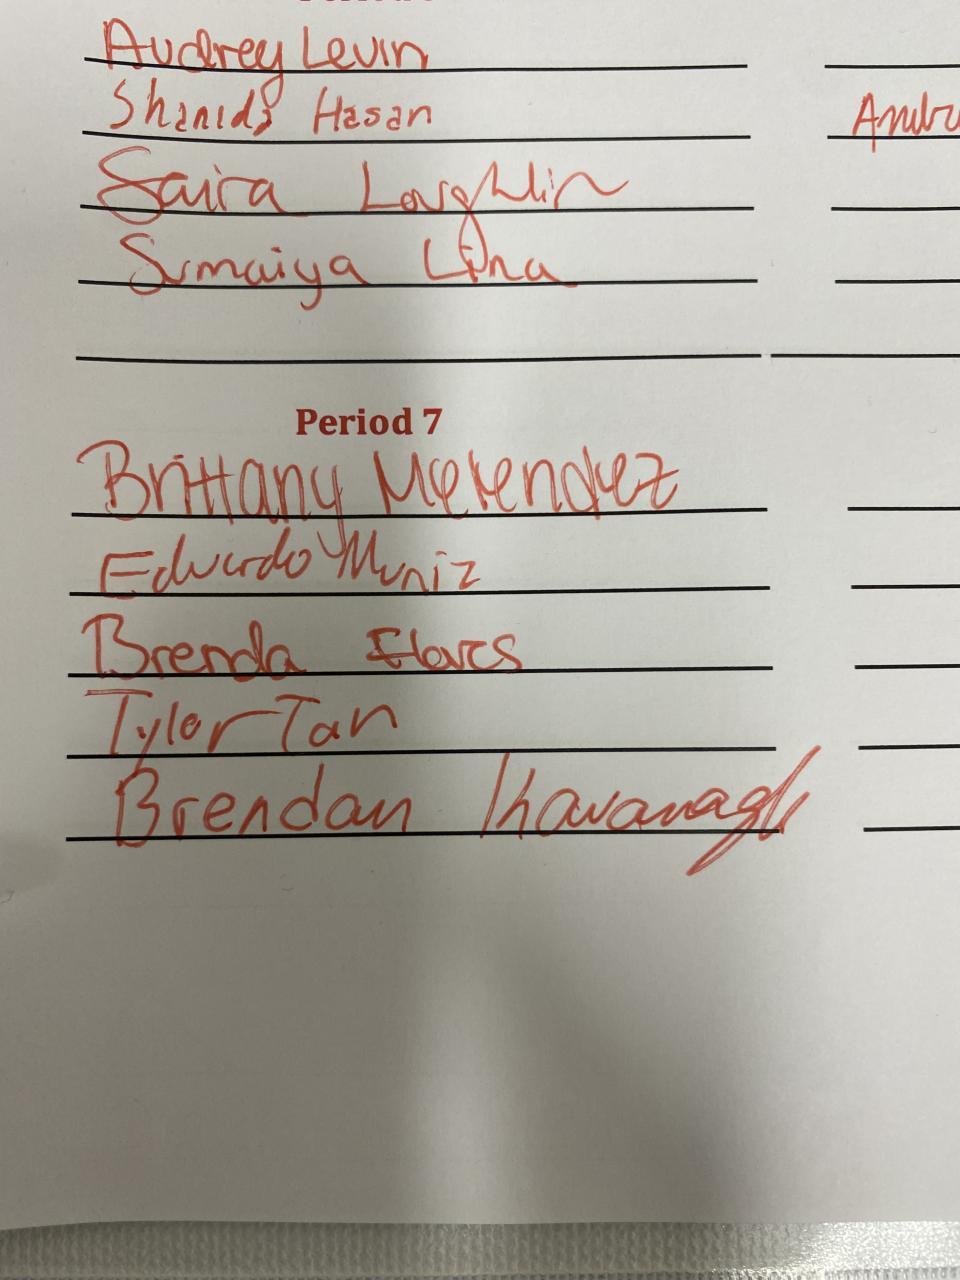 Audrey Levin
Shanida Hasan
Saira Loughlin
Sumaiya Lina
Period 7
Brittany Melendez
Eduardo Muniz
Brenda Flores
Tyler Tan
Brendan Kavanagh